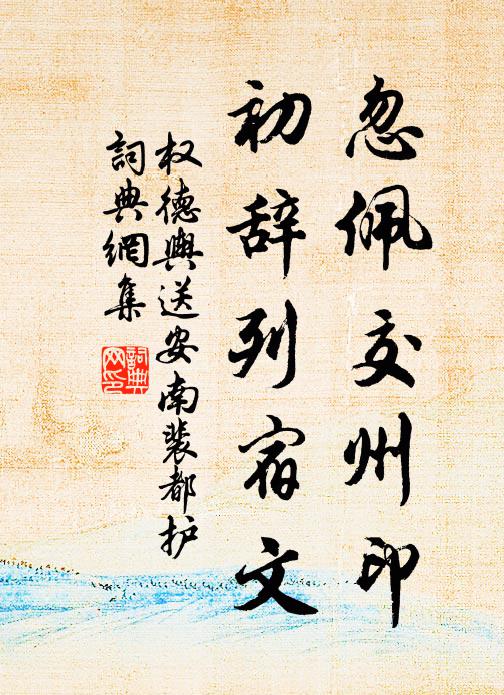 忽佩交州印
初辞列宿文
权德舆送安南裴都护
詞典網集
詞典
网印